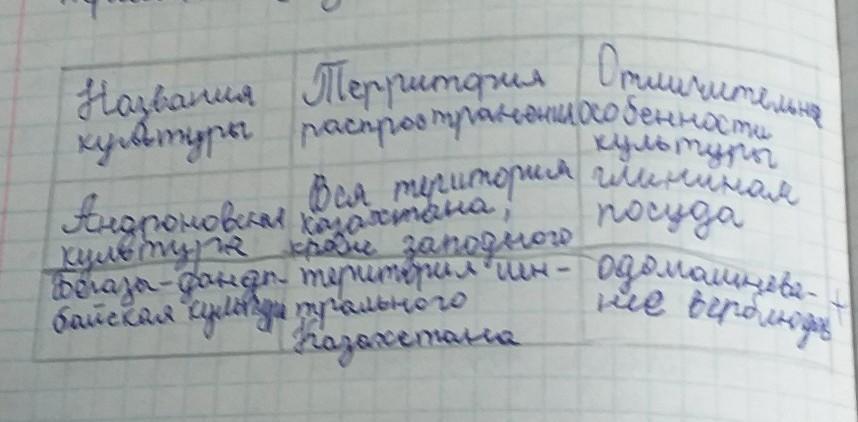 Названия
культуры
Территория
распространения
Отличительные
особенности
культуры
Андроновская
культура
Вся територия
казахстана,
кроме западного
глининая
посуда
Бегазы-данды-
байская культура
територия цен-
трального
Казахстана
одомашнева-
ние верблюдов
+